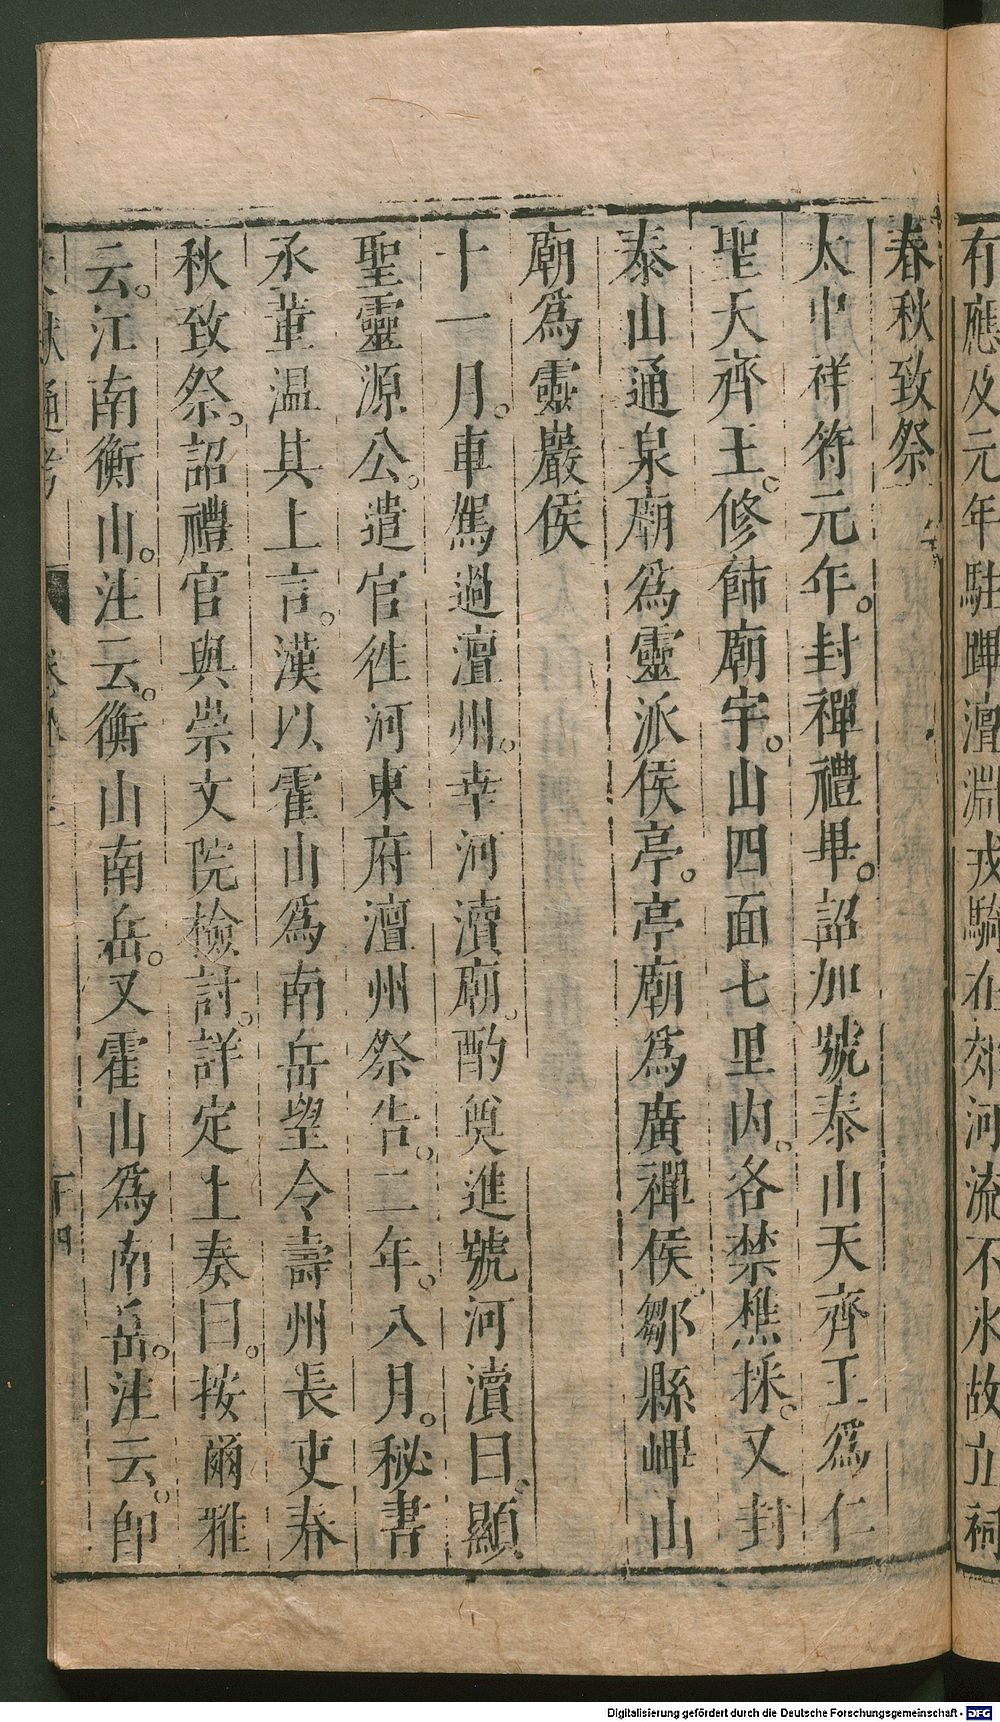 有應及元年駐蹕澶淵戎騎在郊河流不氷故立祠
春秋致祭
太中祥符元年。封禪禮畢。詔加號泰山天齊王爲仁
聖天齊王。修飾廟宇。山四面七里内。各禁樵採。又封
泰山通泉廟爲靈派侯亭。亭廟爲廣禪侯鄒縣嶧山
廟爲靈巖侯
十一月。車駕過澶州。幸河瀆廟。酌奠進號河瀆曰。顯
聖靈源公。遣官徃河東府澶州祭告。二年。八月。秘書
丞董温其上言。漢以霍山爲南岳望令壽州長吏春
秋致祭。詔禮官與崇文院檢討。詳定上奏曰。按爾雅
云。江南衡山。注云。衡山南岳。又霍山爲南岳。注云。卽
文獻通考
十四
Digitalisierung gefördert durch die Deutsche Forschungsgemeinschaft - DFG